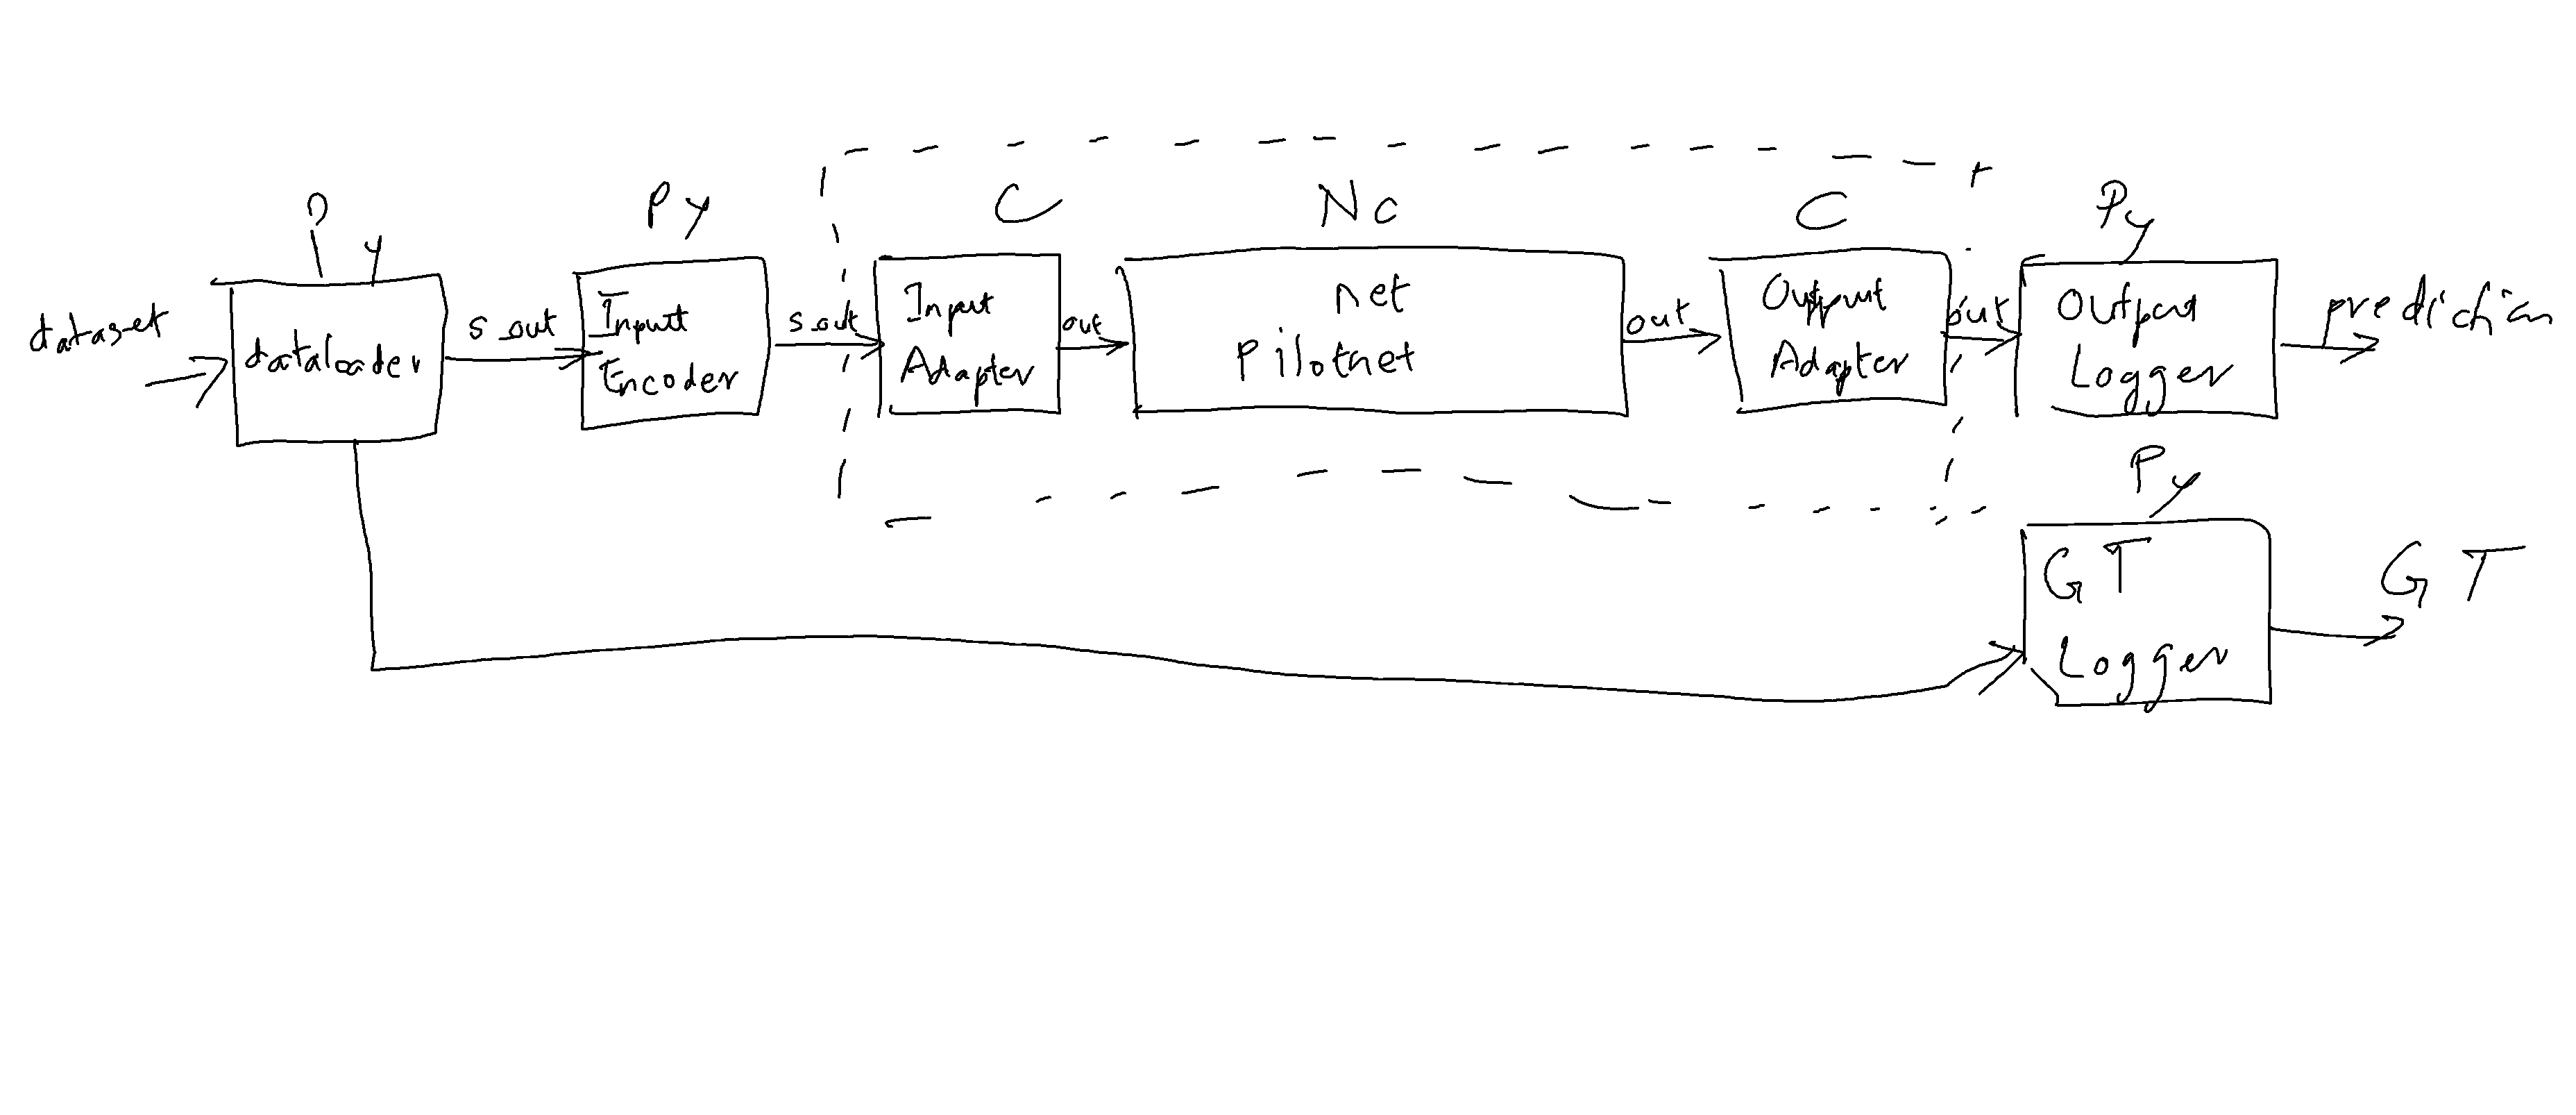 Py
Py
C
Nc
C
Py
dataset
dataloader
s_out
Input
Encoder
s_out
Input
Adapter
out
net
Pilotnet
out
Output
Adapter
out
Output
Logger
prediction
Py
GT
Logger
GT